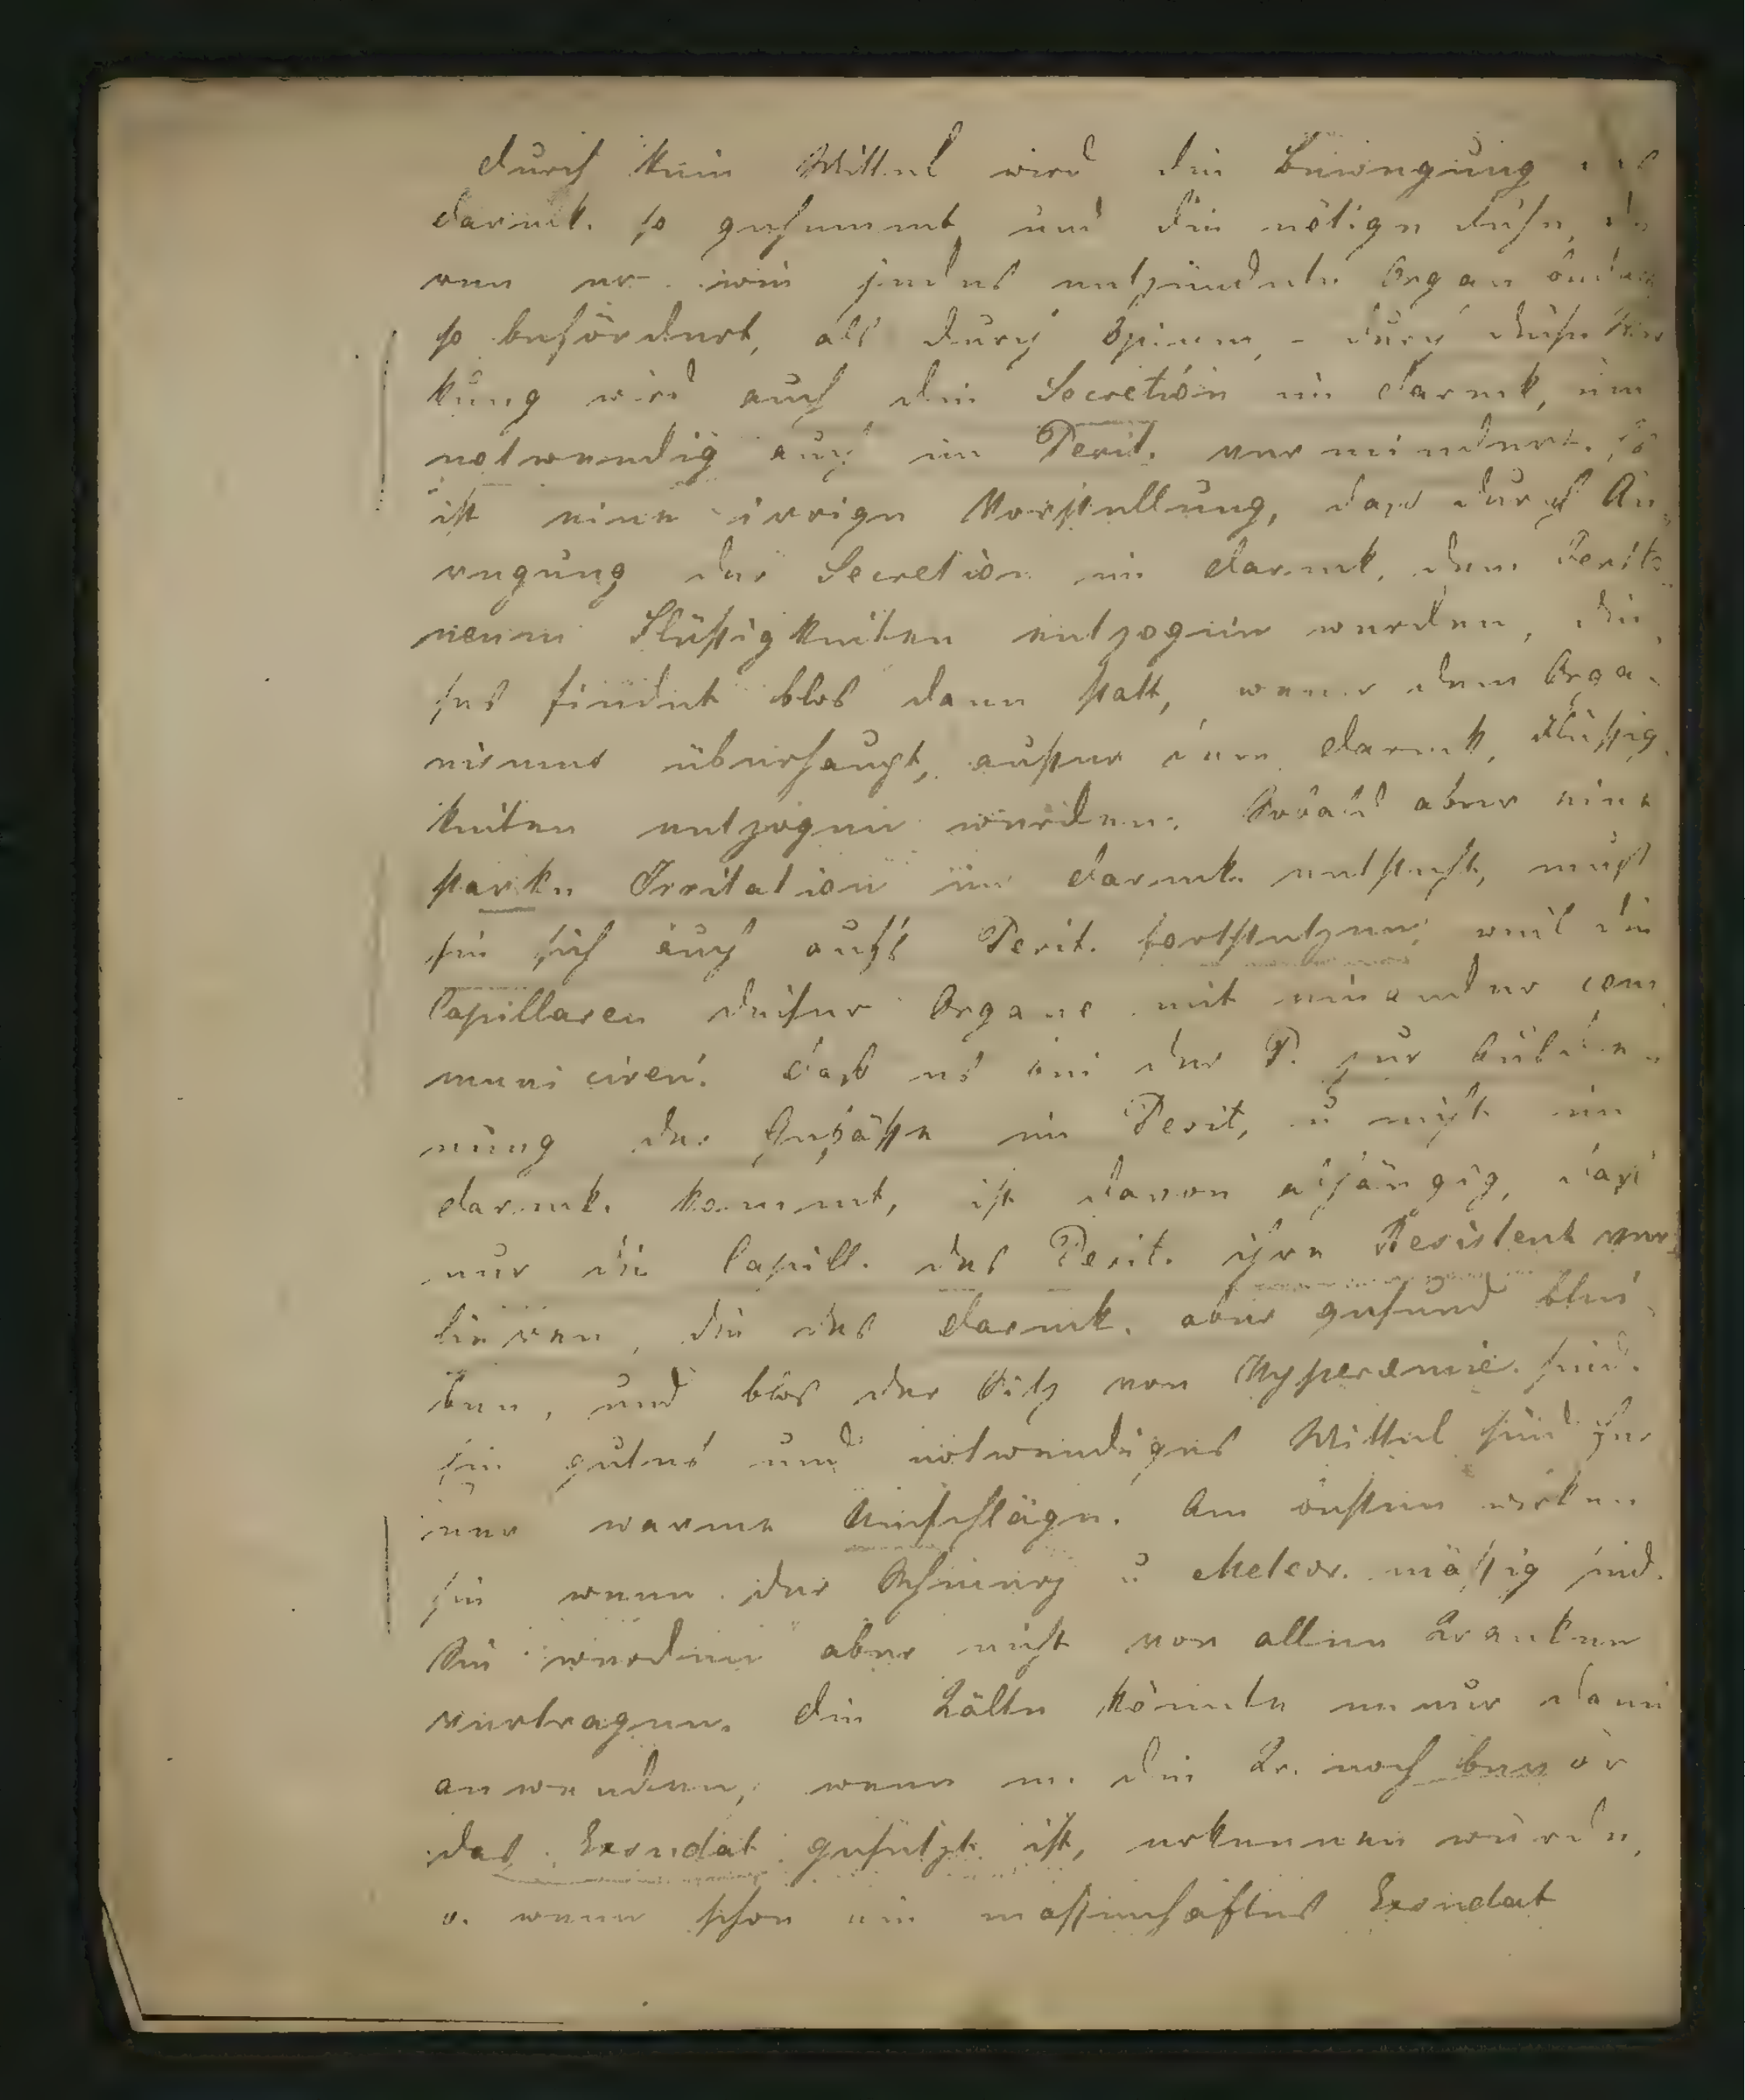 Durch kein Mittel wird die Bewegung des
Darmk. so gehemmt und die nötige Ruhe, de
ren er wie jedes entzündete Organ bedarf
so befördert, als durch Opium, - durch diese Wir
kung wird auch die Secretion im Darmk, und
notwendig auch im Perit. vermindert. Es
ist eine irrige Vorstellung, dass durch An
regung der Secretion im Darmk. dem Perito
neum Flüssigkeiten entzogen werden, die
ses findet blos dann statt, wenn dem Orga
nismus überhaupt, ausser dem Darmk, Flüssig
keiten entzogen werden. Sobald aber eine
starke Irritation im Darmk. entsteht, muss
sie sich auch aufs Perit. fortsetzen, weil die
Capillaren dieser Organe mit einander com
municiren. Dass es bei der P. zur
nung der Gefässe im Perit, u nicht im
Darmk. kommt, ist davon abhängig, dass
nur die Capill. des Perit. ihre Resistenz ver
lieren, die des Darmk. aber gesund blei
ben, und blos der Sitz von Hyperemie sind.
Ein gutes und notwendiges Mittel sind fer
ner warme Umschläge. Am besten wirken
sie wenn der Schmerz u Meteor. mässig sind.
Sie werden aber nicht von allen Kranken
vertragen. Die Kälte könnte man nur dann
anwenden, wenn m. die Kr. noch bevor
das Exsudat gesetzt ist, erkennen würde,
o. wenn schon ein massenhaftes Exsudat